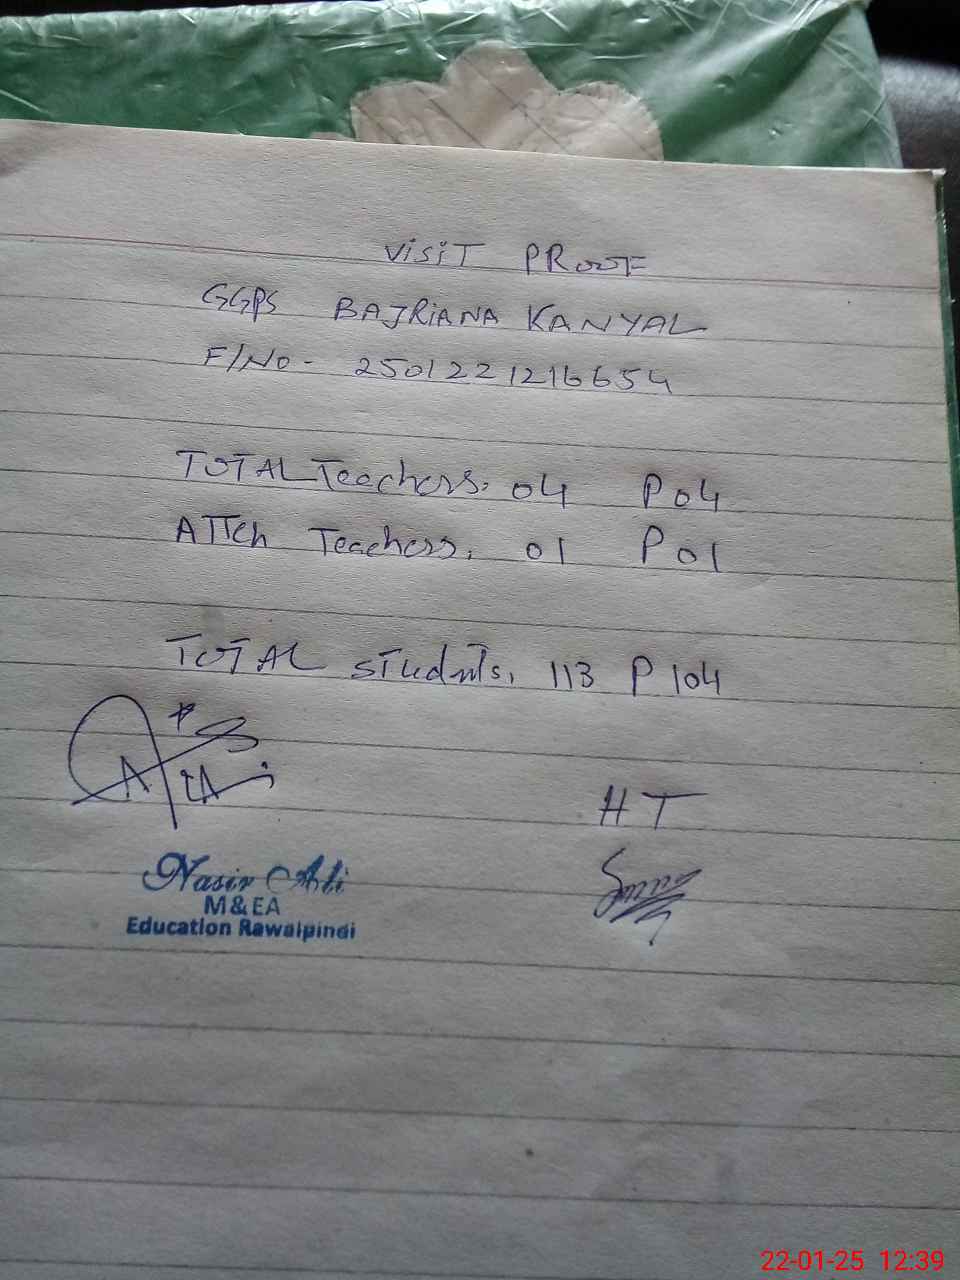 VISIT PROOF
GGPS BAJRIANA KANYAL
F/NO - 2501221216654
TOTAL Teachers. 04 P 04
ATTCh Teachers. 01 P 01
TOTAL STudnts. 113 P 104
HT
Nasir Ali
M&EA
Education Rawalpindi
22-01-25 12:39